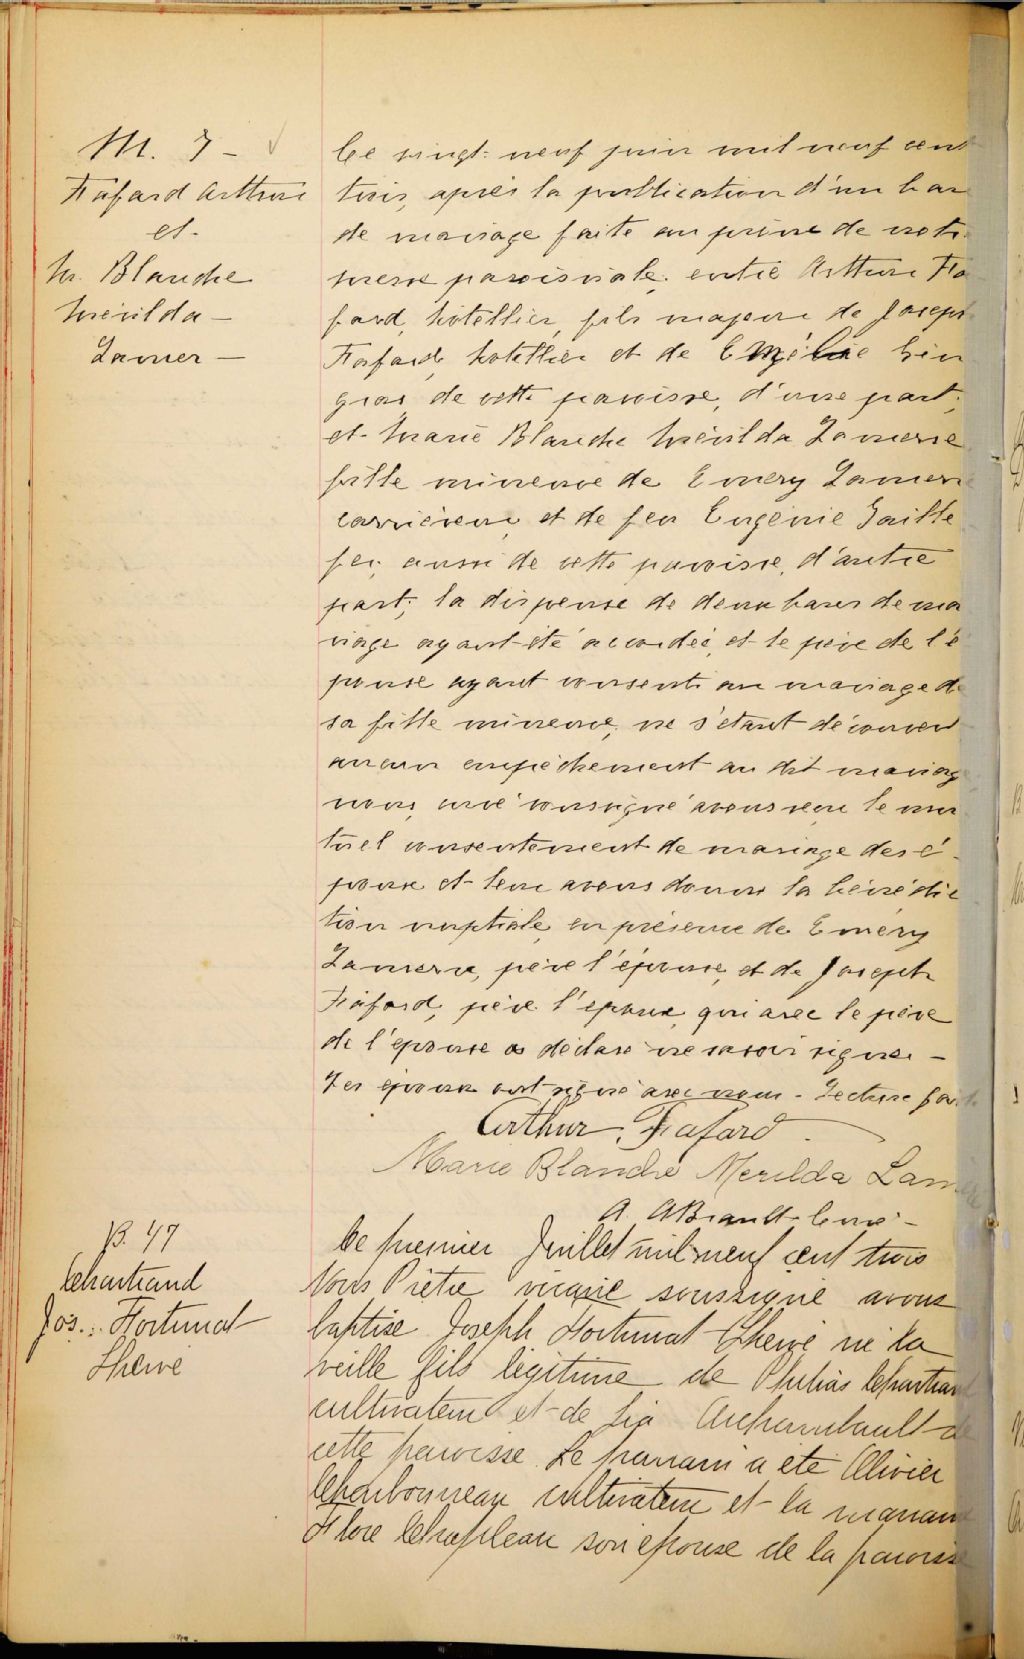 M. 7 -
Fafard Arthur
et
M. Blanche
Mérilda -
Lamer -
Ce vingt-neuf juin mil neuf cent
trois, après la publication d'un ban
de mariage faite au prône de notre
messe paroissiale, entre Arthur Fa
fard, hôtellier, fils majeur de Joseph
Fafard, hotellier et de Emélie Gin
gras de cette paroisse, d'une part;
et Marie Blanche Mérilda Lamerre
fille mineure de Emery Lamerre
carrièreur, et de feu Eugénie Taille
fer, aussi de cette paroisse, d'autre
part; la dispense de deux bans de ma
riage ayant été accordée, et le père de l'é
pouse ayant consenti au mariage de
sa fille mineure, ne s'étant découvert
aucun empêchement au dit mariage
nous, curé soussigné avons reçu le mu
tuel consentement de mariage des é-
poux et leur avons donné la bénédic
tion nuptiale, en présence de Emery
Lamerre, père l'épouse, et de Joseph
Fafard, père l'époux, qui avec le père
de l'épouse a déclaré ne savoir signer -
Les époux ont signé avec nous - Lecture faite
Arthur Fafard.
Marie Blanche Merilda Lamerre
A. Brault curé -
B. 47
Chartrand
Jos. Fortunat
Hervé
Ce premier Juillet mil neuf cent trois
Nous Prêtre vicaire soussigné avons
baptisé Joseph Fortunat Hervé né la
veille fils légitime de Philias Chartrand
cultivateur et de Lia Archambault de
cette paroisse. Le parrain a été Olivier
Charbonneau cultivateur et la marraine
Flore Chapleau son épouse de la paroisse